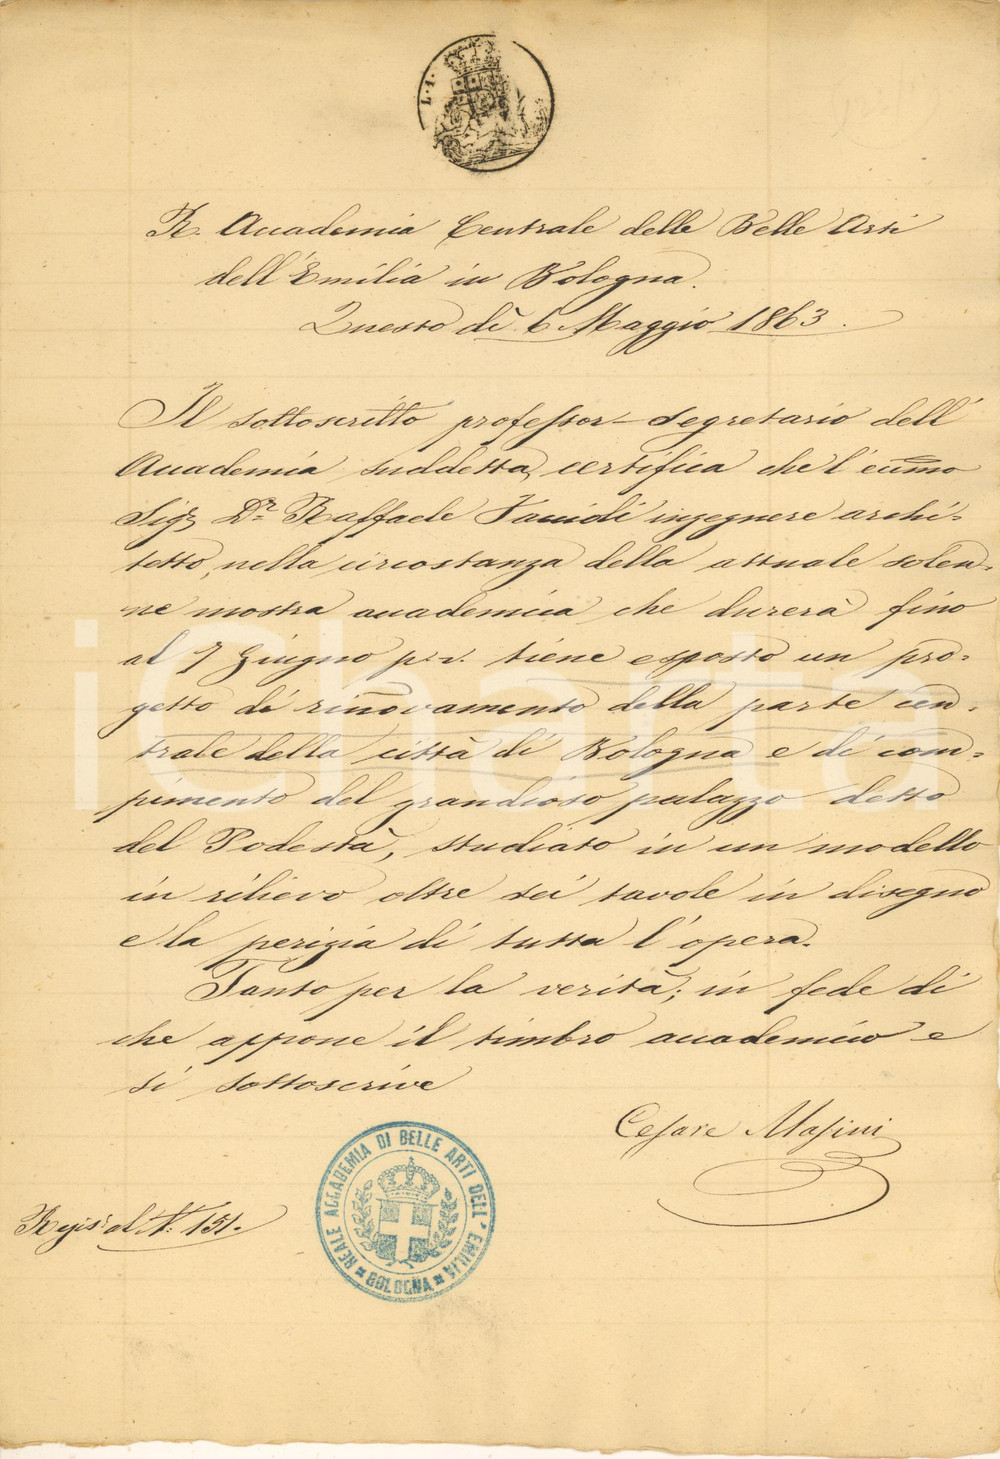 L. 1.
R. Accademia Centrale delle Belle Arti
dell'Emilia in Bologna.
Questo dì 6 Maggio 1863.
Il sottoscritto professor-segretario dell'
Accademia suddetta, certifica che l'ecc̃mo
Sigr. Dr. Raffaele Faccioli ingegnere archi-
tetto, nella circostanza della attuale solen-
ne mostra accademica che durerà fino
al 7 Giugno p.v. tiene esposto un pro-
getto di rinnovamento della parte cen-
trale della città di Bologna e di com-
pimento del grandioso palazzo detto
del Podestà, studiato in un modello
in rilievo oltre sei tavole in disegno
e la perizia di tutta l'opera.
Tanto per la verità; in fede di
che appone il timbro accademico e
si sottoscrive
Cesare Masini
REALE ACCADEMIA DI BELLE ARTI DELL'EMILIA
BOLOGNA
Regis. al N. 151.
iCharta